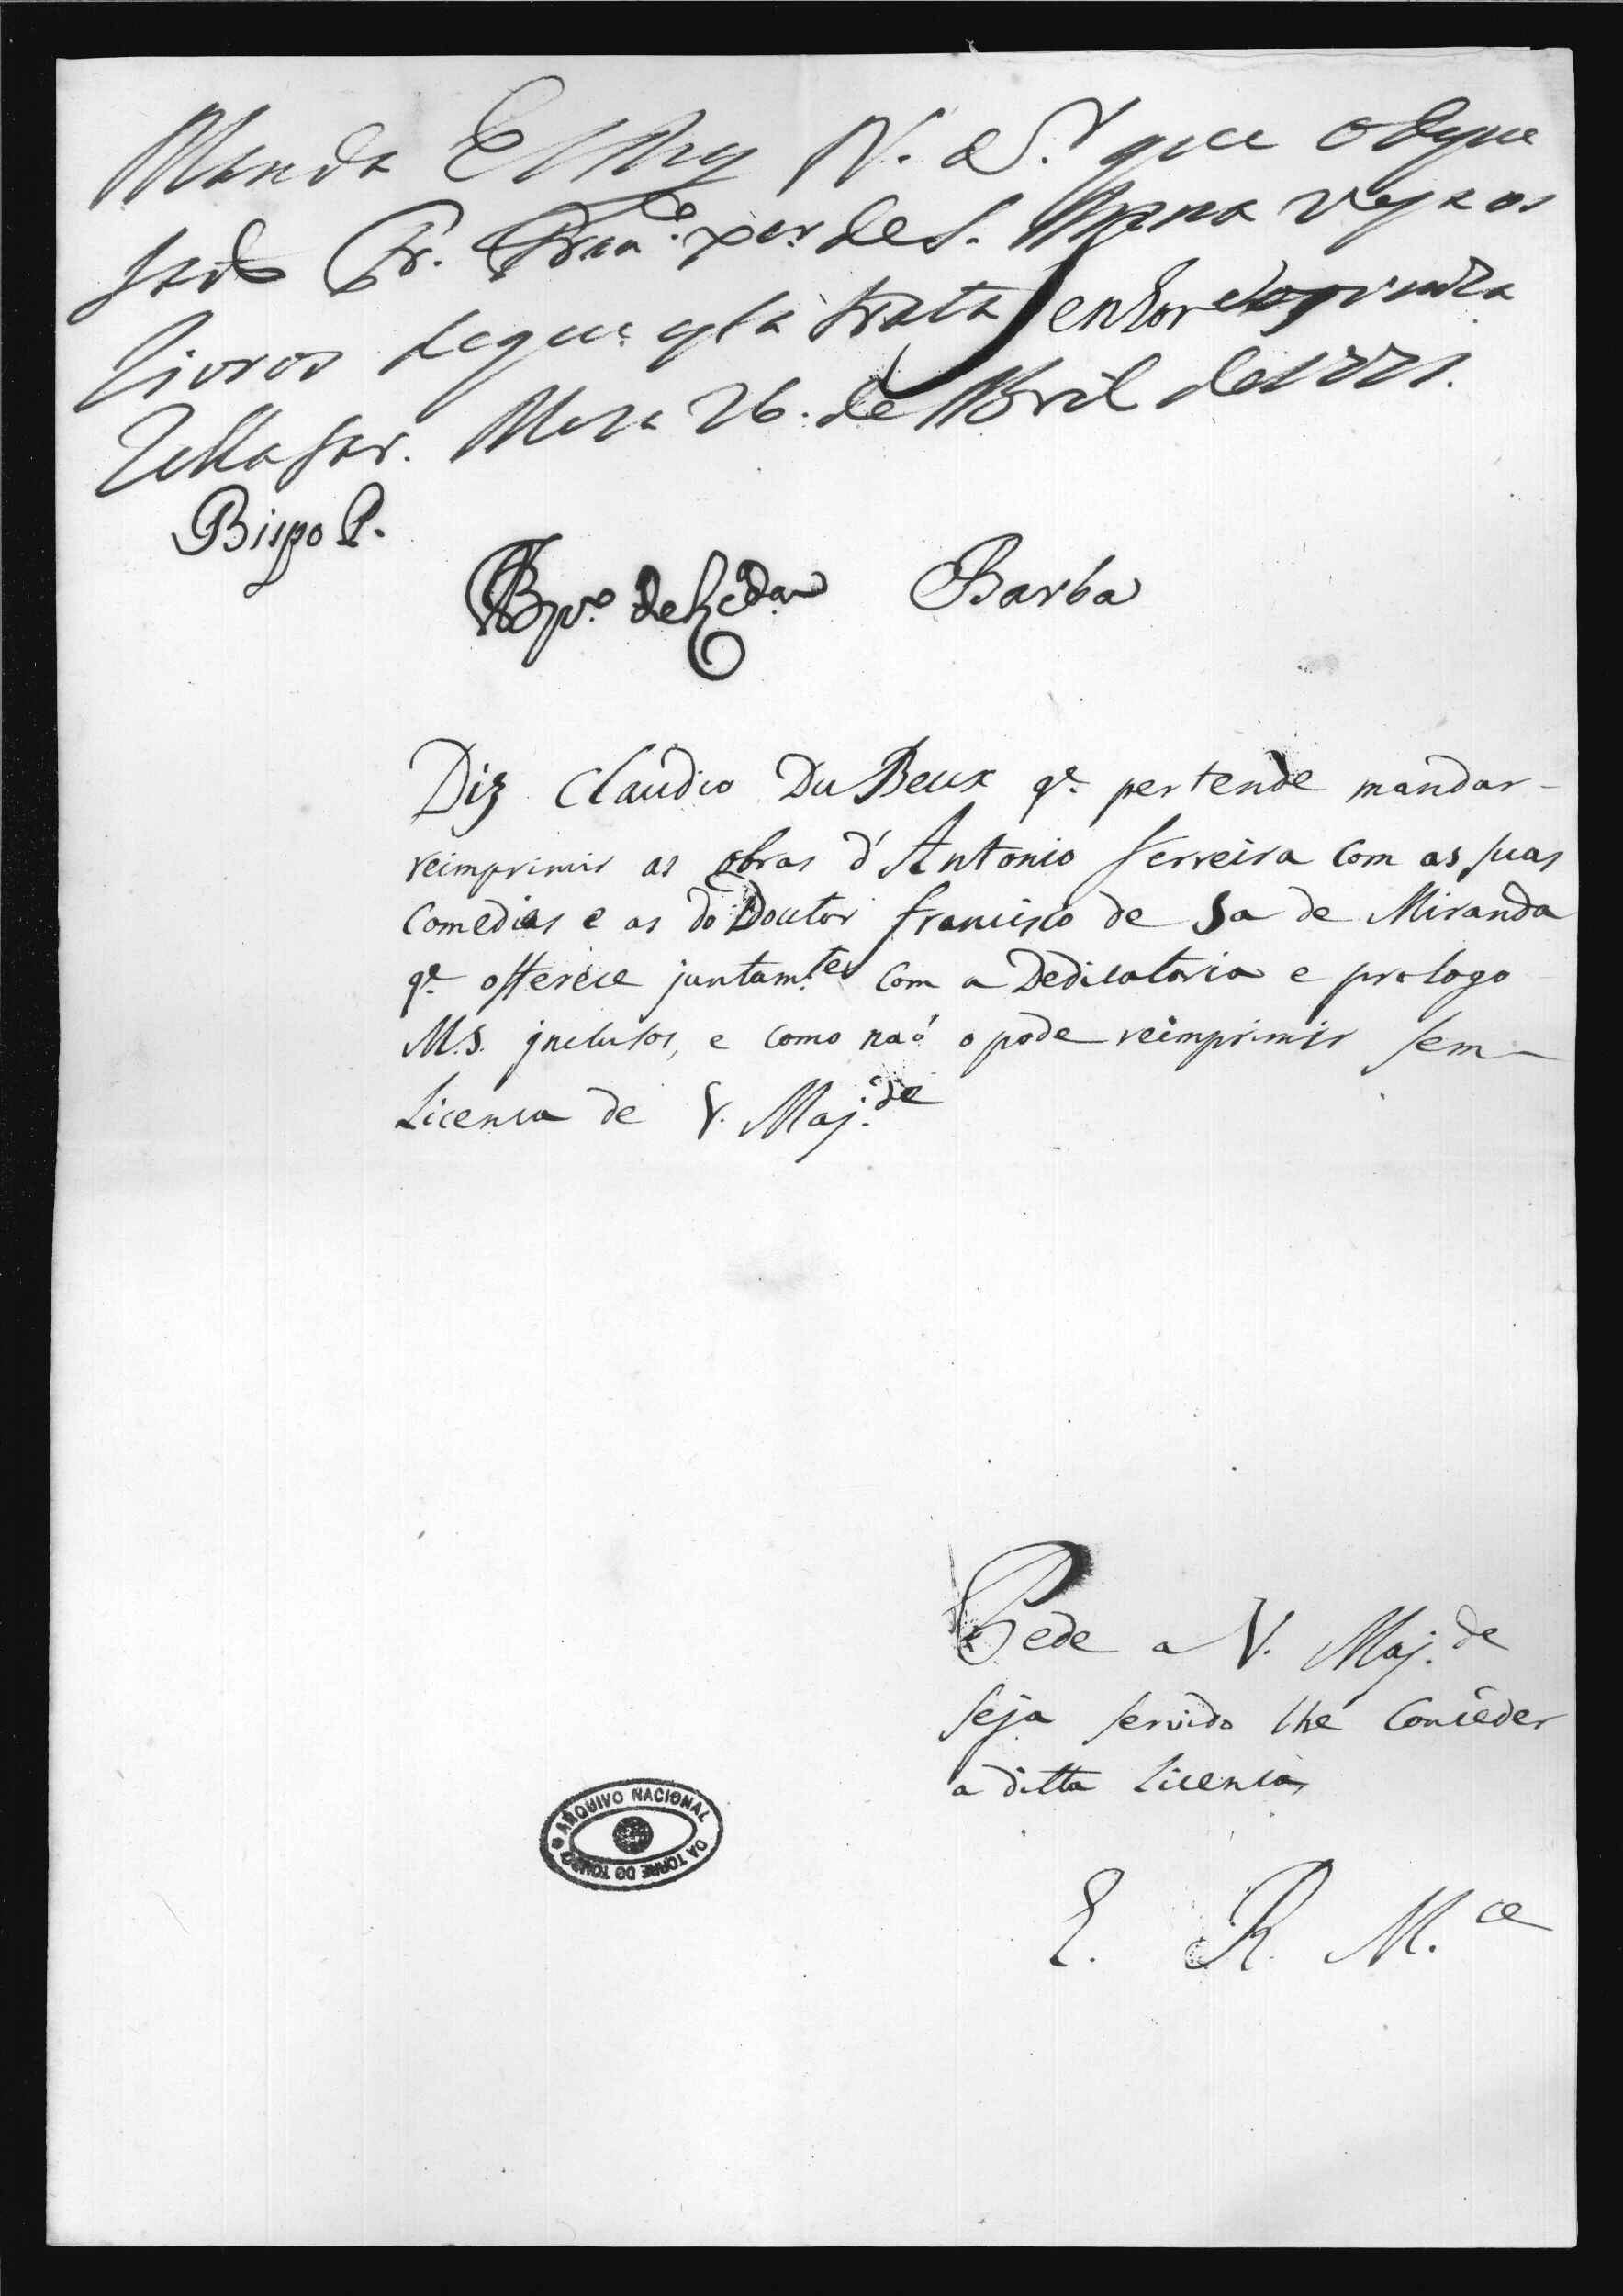 Manda El Rey N. S.r que o Depu
tado Fr. Fran.co X.er de S. Anna veja os
livros de que esta trata e informa
Rellatar. Meza 26. de Abril de 1771.
Bispo P.
Barba
Senhor
Diz Claudio Du Beux q.e pertende mandar
reimprimir as obras d'Antonio ferreira com as suas
Comedias e as do Doutor francisco de Sa de Miranda
q.e offerece juntam.te com a Dedicatoria e prologo
M.S. jnclusos, e como naó o pode reimprimir sem
Licença de V. Maj.de
Pede a V. Maj.de
seja servido lhe Conceder
a ditta Licença
E. R. M.ce
ARQUIVO NACIONAL DA TORRE DO TOMBO